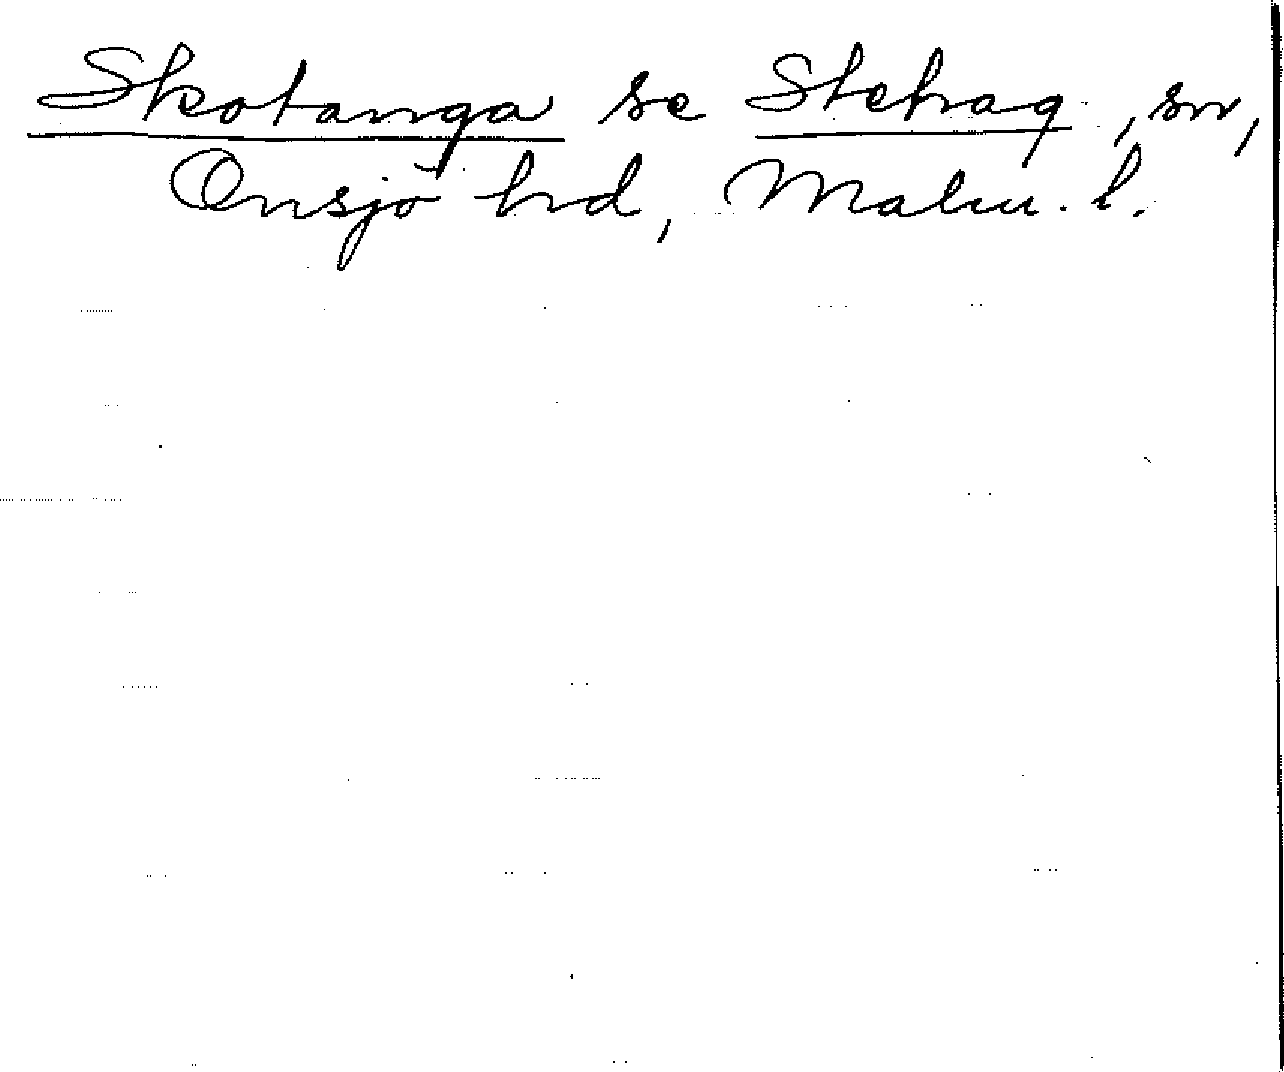 Skotanga se Stehag, sn,
Onsjö hd, Malm. l.